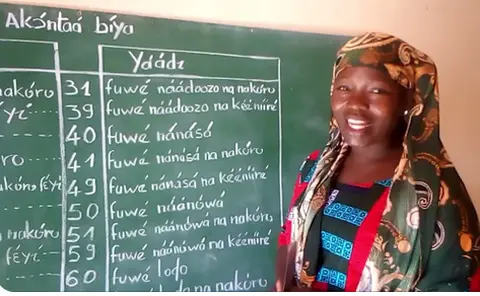 Akóntaá bíya
Yáádɩ
nakóro 31 fuwé náádoozo na nakóro
39 fuwé náádoozo na kéeniíré
40 fuwé nánásá
41 fuwé nánásá na nakóro
49 fuwé nánásá na kéeniíré
50 fuwé náánówá
nakóro 51 fuwé náánówá na nakóro
féyí 59 fuwé náánówá na kéeniíré
60 fuwé lodo
na nakóro